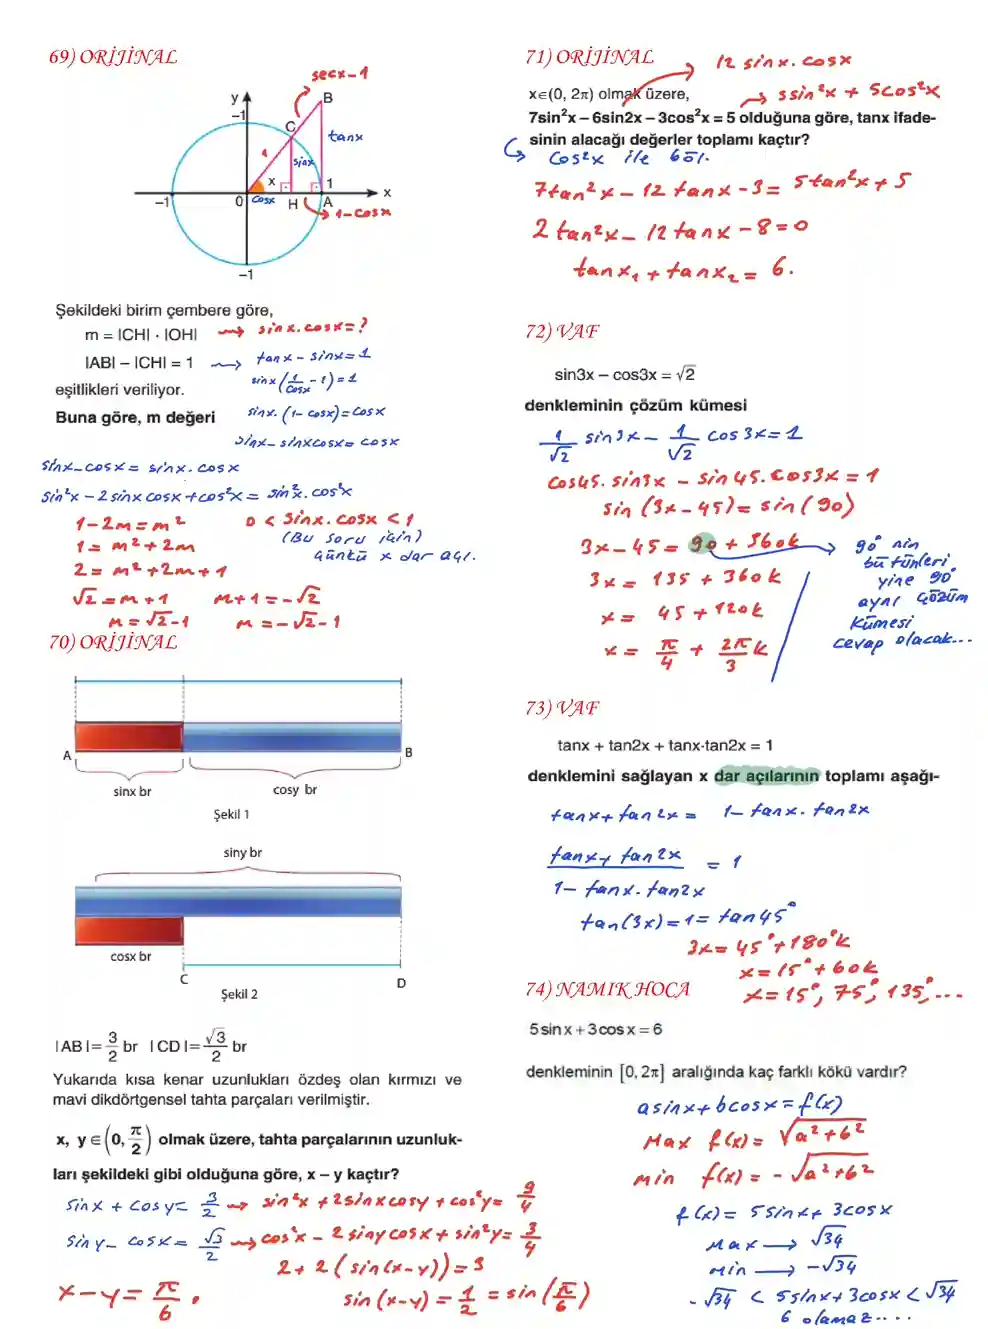 69) ORİJİNAL
secx-1
y
1
B
C
tanx
1
sinx
x
1
-1
0
cosx
H
A
x
1-cosx
-1
Şekildeki birim çembere göre,
m = |CH| · |OH| → sinx.cosx=?
|AB| – |CH| = 1 → tanx - sinx=1
sinx(1/cosx - 1)=1
eşitlikleri veriliyor.
Buna göre, m değeri
sinx.(1-cosx)=cosx
sinx-sinxcosx=cosx
sinx-cosx= sinx.cosx
sin²x-2sinxcosx+cos²x= sin²x.cos²x
1-2m=m²
0 < sinx.cosx < 1
1= m²+2m
(Bu soru için)
2= m²+2m+1
çünkü x dar açı.
√2=m+1 m+1=-√2
m=√2-1 m=-√2-1
70) ORİJİNAL
A
B
sinx br
cosy br
Şekil 1
siny br
cosx br
C
D
Şekil 2
|AB|= 3/2 br |CD|= √3/2 br
Yukarıda kısa kenar uzunlukları özdeş olan kırmızı ve
mavi dikdörtgensel tahta parçaları verilmiştir.
x, y ∈ (0, π/2) olmak üzere, tahta parçalarının uzunluk-
ları şekildeki gibi olduğuna göre, x – y kaçtır?
sinx + cosy= 3/2 → sin²x +2sinxcosy+cos²y= 9/4
siny- cosx= √3/2 → cos²x - 2sinycosx+sin²y= 3/4
2+2(sin(x-y))=3
x-y= π/6 .
sin(x-y) = 1/2 = sin(π/6)
71) ORİJİNAL
12 sinx.cosx
x∈(0, 2π) olmak üzere,
5sin²x + 5cos²x
7sin²x – 6sin2x – 3cos²x = 5 olduğuna göre, tanx ifade-
sinin alacağı değerler toplamı kaçtır?
cos²x ile böl.
7tan²x - 12tanx - 3= 5tan²x+5
2tan²x- 12tanx-8=0
tanx₁ + tanx₂ = 6.
72) VAF
sin3x – cos3x = √2
denkleminin çözüm kümesi
1/√2 sin3x- 1/√2 cos3x=1
cos45.sin3x - sin45.cos3x=1
sin(3x-45)= sin(90)
3x-45= 90 + 360k
90° nin
bütünleri
yine 90°
aynı çözüm
kümesi
cevap olacak...
3x= 135 + 360k
x= 45+120k
x= π/4 + 2π/3 k
73) VAF
tanx + tan2x + tanx·tan2x = 1
denklemini sağlayan x dar açılarının toplamı aşağı-
tanx+tan2x= 1-tanx.tan2x
tanx+tan2x
= 1
1- tanx.tan2x
tan(3x)=1= tan45°
3x=45°+180°k
x=15°+60k
x=15°, 75°, 135°, ...
74) NAMIK HOCA
5 sin x + 3 cos x = 6
denkleminin [0, 2π] aralığında kaç farklı kökü vardır?
asinx+bcosx=f(x)
Max f(x)= √a²+b²
min f(x)= -√a²+b²
f(x)= 5sinx+3cosx
Max → √34
min → -√34
-√34 < 5sinx+3cosx<√34
6 olamaz....